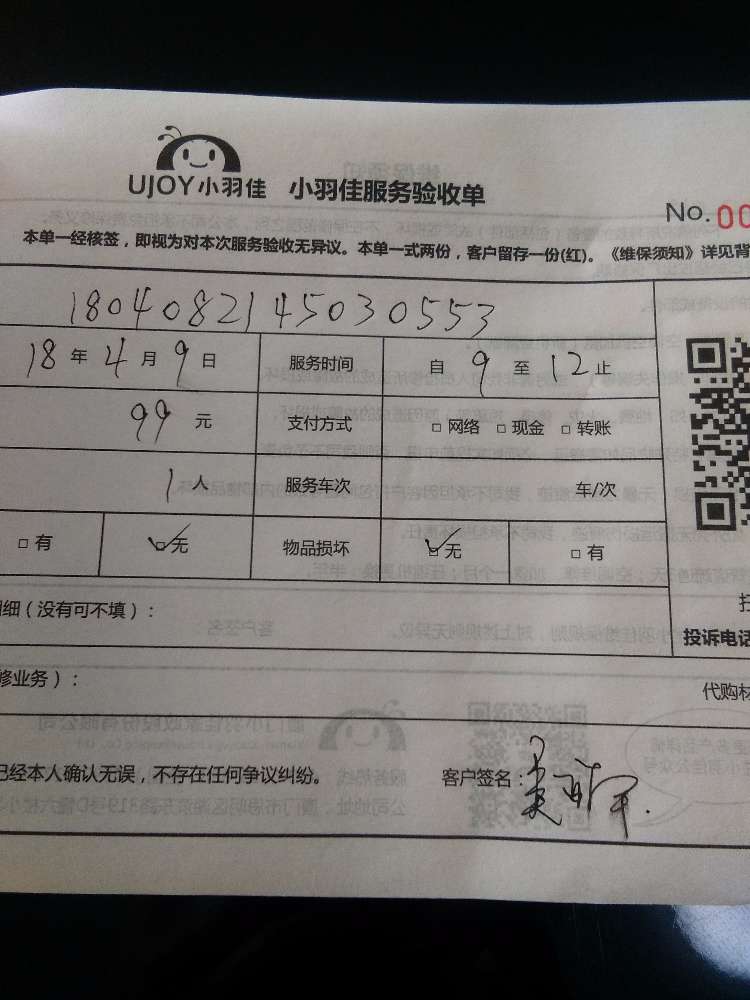 UJOY小羽佳 小羽佳服务验收单
No. 00
本单一经核签，即视为对本次服务验收无异议。本单一式两份，客户留存一份(红)。《维保须知》详见背
1804082145030553
18 年 4 月 9 日 服务时间 自 9 至 12 止
99 元 支付方式 □ 网络 □ 现金 □ 转账
1 人 服务车次 车/次
□ 有 ☑ 无 物品损坏 ☑ 无 □ 有
细（没有可不填）：
投诉电话
修业务）：
代购材
已经本人确认无误，不存在任何争议纠纷。 客户签名：